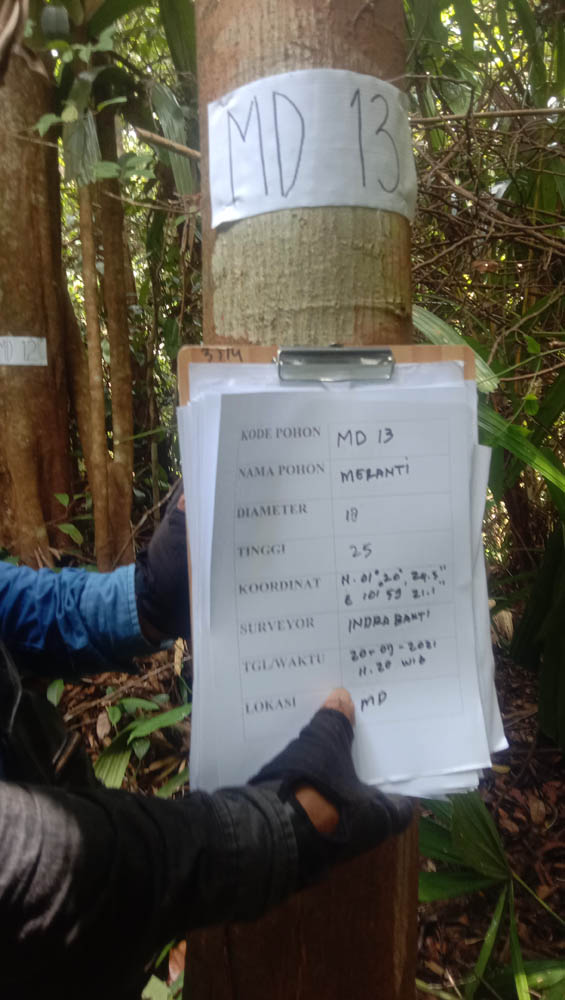 MD 13
MD 12
KODE POHON MD 13
NAMA POHON MERANTI
DIAMETER 18
TINGGI 25
KOORDINAT N. 01° 20' 24.5"
E 101 59 21.1"
SURVEYOR INDRA BAKTI
TGL/WAKTU 20-09-2021
11.20 WIB
LOKASI MD